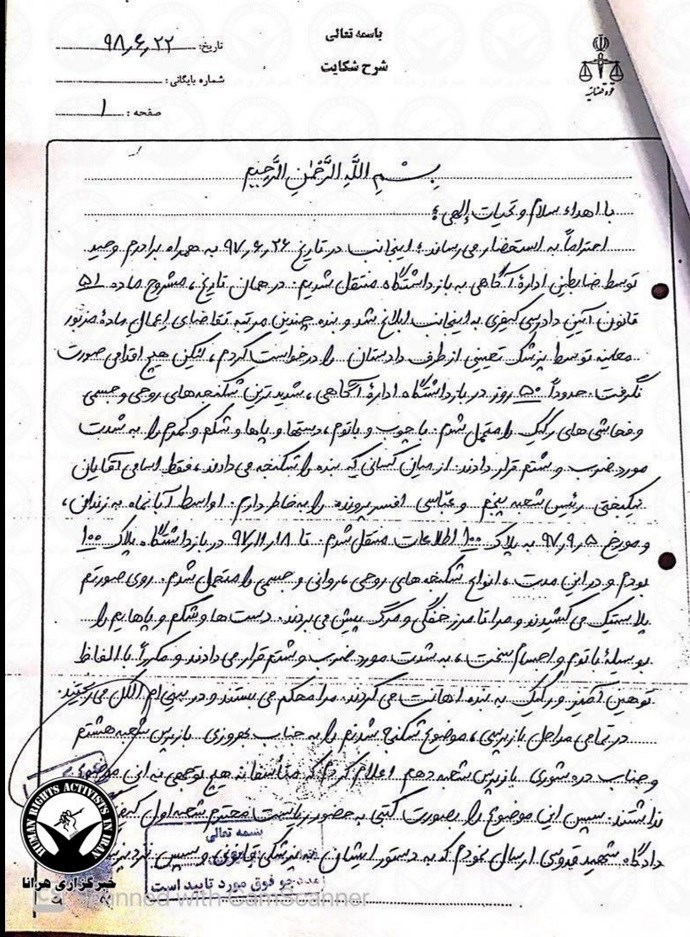 باسمه تعالی
شرح شکایت
تاریخ: ۹۸٫۶٫۲۲
شماره بایگانی:
صفحه: ۱
قوه قضائیه
بِسْمِ اللَّهِ الرَّحْمٰنِ الرَّحِیمِ
با اهداء سلام و تحیات الهی؛
احتراماً به استحضار می‌رساند؛ اینجانب در تاریخ ۹۷٫۶٫۲۶ به همراه برادرم وحید
توسط ضابطین ادارهٔ آگاهی به بازداشتگاه منتقل شدیم. در همان تاریخ، مشروح ماده ۵۱
قانون آیین دادرسی کیفری به اینجانب ابلاغ شد و بنده چندین مرتبه تقاضای اعمال مادهٔ مزبور
معاینه توسط پزشک تعیینی از طرف دادستان را درخواست کردم، لیکن هیچ اقدامی صورت
نگرفت. حدوداً ۵۰ روز در بازداشتگاه ادارهٔ آگاهی، شدیدترین شکنجه‌های روحی و جسمی
و فحاشی‌های رکیک را متحمل شدم. با چوب و باتوم، دستها و پاها و شکم و کمرم را به شدت
مورد ضرب و شتم قرار دادند. از میان کسانی که بنده را شکنجه می‌دادند، فقط اسامی آقایان
نیکبختی رئیس شعبه پنجم و عباسی افسر پرونده را به خاطر دارم. اواسط آبانماه به زندان،
و مورخ ۹۷٫۹٫۵ به پلاک ۱۰۰ اطلاعات منتقل شدم. تا ۹۷٫۱۱٫۱۸ در بازداشتگاه پلاک ۱۰۰
بودم و در این مدت، انواع شکنجه‌های روحی، روانی و جسمی را متحمل شدم. روی صورتم
پلاستیک می‌کشیدند و مرا تا مرز خفگی و مرگ پیش می‌بردند. دست‌ها و شکم و پاهایم را
بوسیلهٔ باتوم و اجسام سخت، به شدت مورد ضرب و شتم قرار می‌دادند و مکرراً با الفاظ
توهین آمیز و رکیک به بنده اهانت می‌کردند. مرا محکم می‌بستند و در بینی‌ام الکل می‌ریختند.
در تمامی مراحل بازپرسی، موضوع شکنجه شدنم را به جناب بازپرس شعبه هشتم
و جناب بازپرس شعبه دهم اعلام کردم که متأسفانه هیچ توجهی به این موضوع
نداشتند. سپس این موضوع را بصورت کتبی به حضور ریاست محترم شعبه اول
دادگاه شهید قدوسی ارسال نمودم که به دستور ایشان به پزشکی قانونی و سپس
بسمه تعالی
مددجو فوق مورد تایید است
HUMAN RIGHTS ACTIVISTS IN IRAN
خبرگزاری هرانا
Scanned with CamScanner